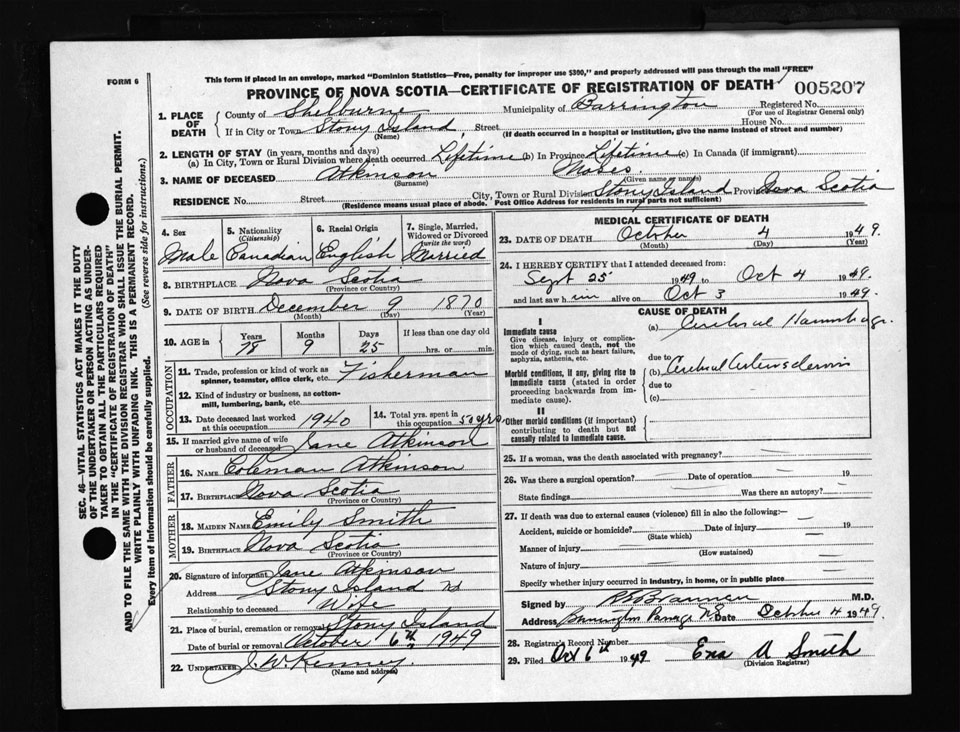 FORM 6
This form if placed in an envelope, marked "Dominion Statistics—Free, penalty for improper use $300," and properly addressed will pass through the mail "FREE"
PROVINCE OF NOVA SCOTIA—CERTIFICATE OF REGISTRATION OF DEATH 005207
1. PLACE OF DEATH
County of Shelburne Municipality of Barrington Registered No.
(For use of Registrar General only)
If in City or Town Stony Island, Street House No.
(Name) (If death occurred in a hospital or institution, give the name instead of street and number)
2. LENGTH OF STAY (in years, months and days)
(a) In City, Town or Rural Division where death occurred Lifetime (b) In Province Lifetime (c) In Canada (if immigrant)
3. NAME OF DECEASED Atkinson Moses.
(Surname) (Given name or names)
RESIDENCE No. Street City, Town or Rural Division Stony Island Province Nova Scotia
(Residence means usual place of abode. Post Office Address for residents in rural parts not sufficient)
4. Sex Male
5. Nationality (Citizenship) Canadian
6. Racial Origin English
7. Single, Married, Widowed or Divorced (write the word) Married
8. BIRTHPLACE Nova Scotia
(Province or Country)
9. DATE OF BIRTH December 9 1870
(Month) (Day) (Year)
10. AGE in Years Months Days If less than one day old
78 9 25 hrs. or min.
OCCUPATION
11. Trade, profession or kind of work as spinner, teamster, office clerk, etc. Fisherman
12. Kind of industry or business, as cotton-mill, lumbering, bank, etc.
13. Date deceased last worked at this occupation 1940
14. Total yrs. spent in this occupation 50 yrs.
15. If married give name of wife or husband of deceased Jane Atkinson
FATHER
16. NAME Coleman Atkinson
17. BIRTHPLACE Nova Scotia
(Province or Country)
MOTHER
18. MAIDEN NAME Emily Smith
19. BIRTHPLACE Nova Scotia
(Province or Country)
20. Signature of informant Jane Atkinson
Address Stony Island NS
Relationship to deceased Wife
21. Place of burial, cremation or removal Stony Island
Date of burial or removal October 6th, 1949
22. UNDERTAKER J. W Kenney.
(Name and address)
MEDICAL CERTIFICATE OF DEATH
23. DATE OF DEATH October 4 1949.
(Month) (Day) (Year)
24. I HEREBY CERTIFY that I attended deceased from:
Sept 25 1949 to Oct 4 1949.
and last saw h im alive on Oct 3 1949.
CAUSE OF DEATH
I
Immediate cause
Give disease, injury or complication which caused death, not the mode of dying, such as heart failure, asphyxia, asthenia, etc.
(a) Cerebral Haemorrhage
due to
Morbid conditions, if any, giving rise to immediate cause (stated in order proceeding backwards from immediate cause).
(b) Cerebral Arteriosclerosis
due to
(c)
II
Other morbid conditions (if important) contributing to death but not causally related to immediate cause.
25. If a woman, was the death associated with pregnancy?
26. Was there a surgical operation? Date of operation 19
State findings Was there an autopsy?
27. If death was due to external causes (violence) fill in also the following:—
Accident, suicide or homicide? Date of injury 19
(State which)
Manner of injury
(How sustained)
Nature of injury
Specify whether injury occurred in industry, in home, or in public place
Signed by Brannen M.D.
Address Barrington Passage NS Date October 4 1949
28. Registrar's Record Number
29. Filed Oct 6th 1949 Ena A Smith
(Division Registrar)
SEC. 46—VITAL STATISTICS ACT MAKES IT THE DUTY
OF THE UNDERTAKER OR PERSON ACTING AS UNDER-
TAKER TO OBTAIN ALL THE PARTICULARS REQUIRED
IN THE "CERTIFICATE OF REGISTRATION OF DEATH"
AND TO FILE THE SAME WITH THE DIVISION REGISTRAR WHO SHALL ISSUE THE BURIAL PERMIT.
WRITE PLAINLY WITH UNFADING INK. THIS IS A PERMANENT RECORD.
Every item of information should be carefully supplied. (See reverse side for instructions.)